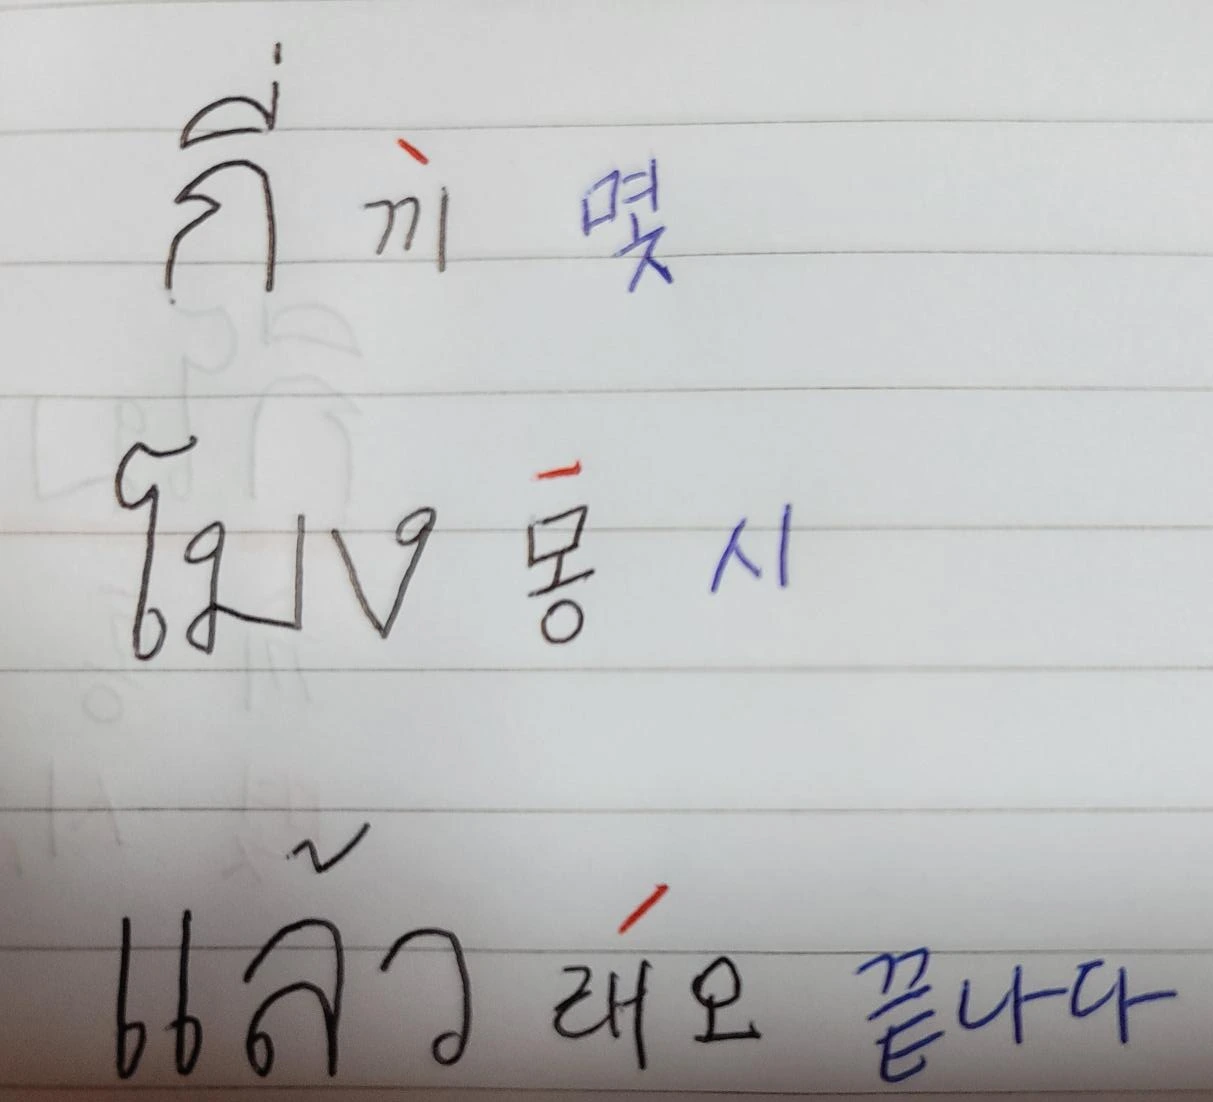 กี่ 끼 몇
โมง 몽 시
แล้ว 래오 끝나다